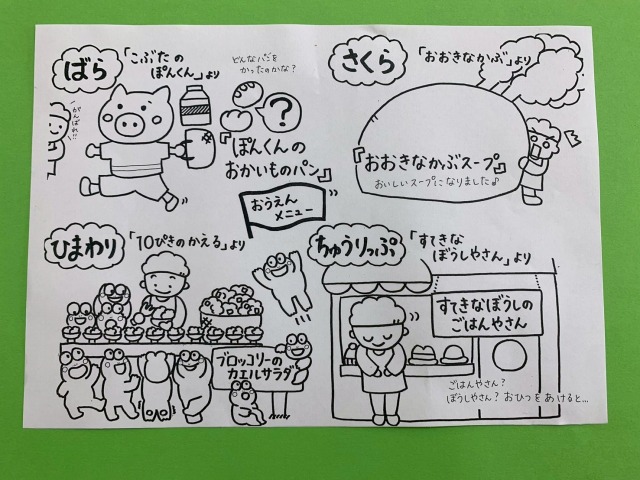 ばら
「こぶたの
ぽんくん」より
どんなパンを
かったのかな？
がんばれ!!
？
『ぽんくんの
おかいものパン』
さくら
「おおきなかぶ」より
『おおきなかぶスープ』
おいしいスープになりました♪
おうえん
メニュー
ひまわり
「10ぴきのかえる」より
ブロッコリーの
カエルサラダ
ちゅうりっぷ
「すてきな
ぼうしやさん」より
すてきなぼうしの
ごはんやさん
ごはんやさん？
ぼうしやさん？ おひつをあけると…